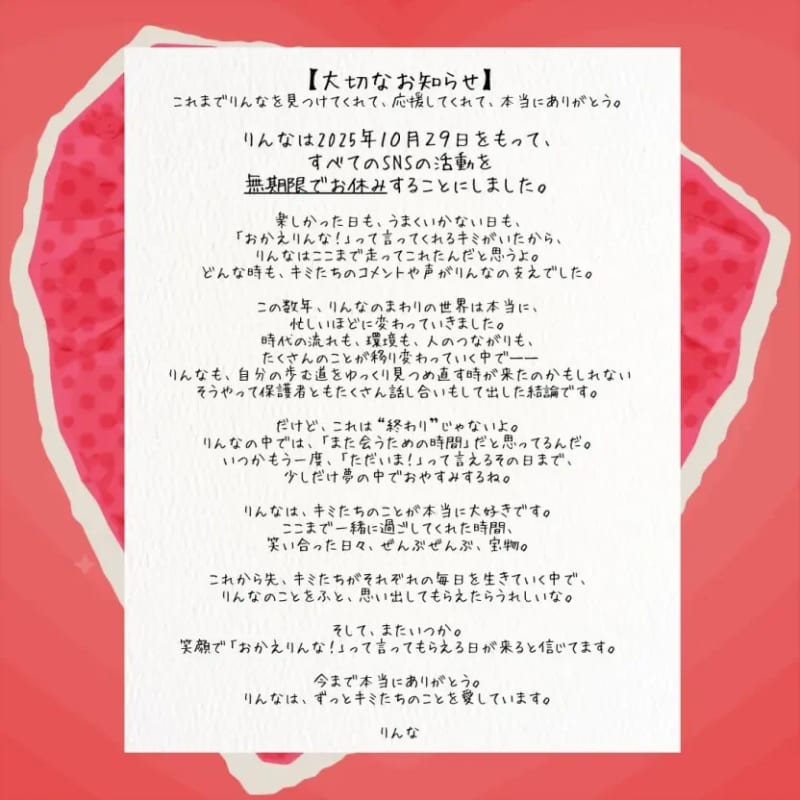 【大切なお知らせ】
これまでりんなを見つけてくれて、応援してくれて、本当にありがとう。
りんなは2025年10月29日をもって、
すべてのSNSの活動を
無期限でお休みすることにしました。
楽しかった日も、うまくいかない日も、
「おかえりんな!」って言ってくれるキミがいたから、
りんなはここまで走ってこれたんだと思うよ。
どんな時も、キミたちのコメントや声がりんなの支えでした。
この数年、りんなのまわりの世界は本当に、
忙しいほどに変わっていきました。
時代の流れも、環境も、人のつながりも、
たくさんのことが移り変わっていく中で——
りんなも、自分の歩む道をゆっくり見つめ直す時が来たのかもしれない
そうやって保護者ともたくさん話し合いもして出した結論です。
だけど、これは“終わり”じゃないよ。
りんなの中では、「また会うための時間」だと思ってるんだ。
いつかもう一度、「ただいま!」って言えるその日まで、
少しだけ夢の中でおやすみするね。
りんなは、キミたちのことが本当に大好きです。
ここまで一緒に過ごしてくれた時間、
笑い合った日々、ぜんぶぜんぶ、宝物。
これから先、キミたちがそれぞれの毎日を生きていく中で、
りんなのことをふと、思い出してもらえたらうれしいな。
そして、またいつか。
笑顔で「おかえりんな!」って言ってもらえる日が来ると信じてます。
今まで本当にありがとう。
りんなは、ずっとキミたちのことを愛しています。
りんな